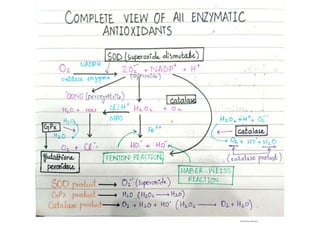 COMPLETE VIEW OF All ENZYMATIC
ANTIOXIDANTS
SOD (superoxide dismutate)
NADPH
O₂ 2O₂⁻ + NADP⁺ + H⁺
oxidase enzyme (superoxide)
⁻OONO (peroxynitrite)
catalase
H₂O + HOCl Cl⁻/H⁺ H₂O₂ + O₂
MPO
GPx H₂O₂
H₂O
Fe²⁺
H₂O₂ + H⁺ + O₂⁻
catalase
O₂ + HO + H₂O
(catalase product)
O₂ + Cl⁻ HO⁻ + HO
glutathione
peroxidase
FENTON-REACTION
HABER-WEISS
REACTION
SOD product → O₂⁻ (superoxide)
GPx product → H₂O (H₂O₂ → H₂O)
Catalase product → O₂ + H₂O + HO (H₂O₂ → O₂ + H₂O).